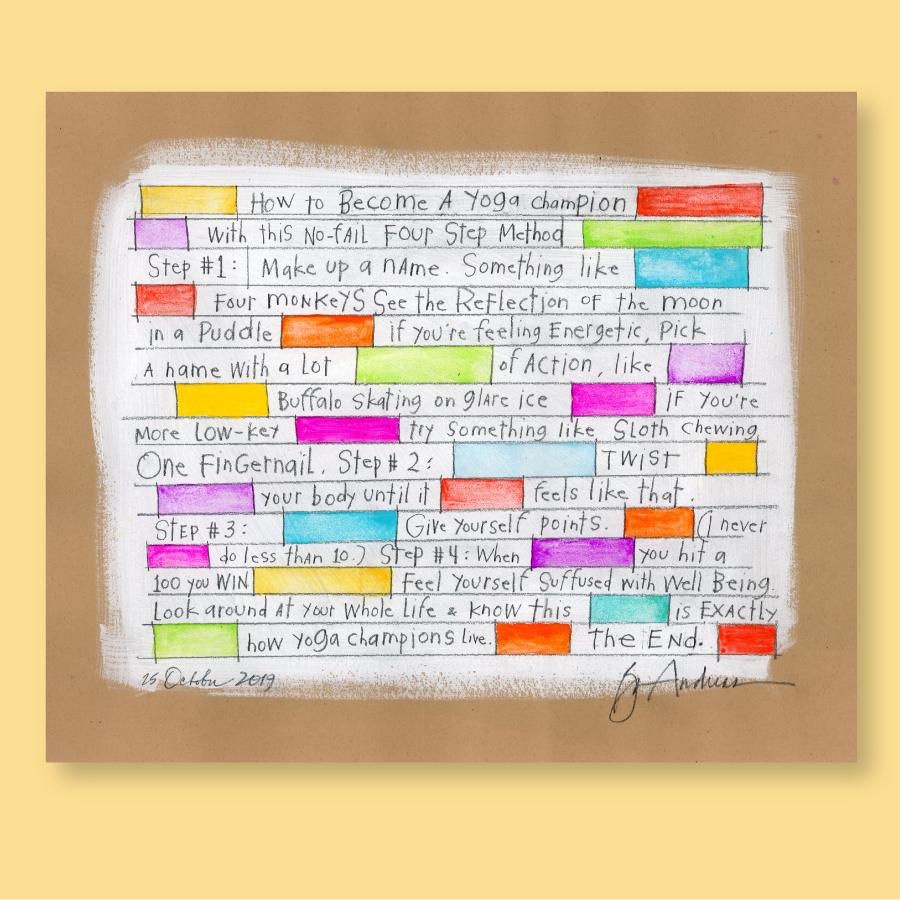 How to Become A Yoga champion
With this No-fail Four Step Method
Step #1: Make up a name. Something like
Four monkeys See the Reflection of the moon
in a Puddle If you're feeling Energetic, Pick
A name with a lot of Action, like
Buffalo skating on glare ice If you're
More low-key try Something like Sloth chewing
One Fingernail. Step #2: Twist
your body until it feels like that.
Step #3: Give yourself points. (I never
do less than 10.) Step #4: When you hit a
100 you WIN Feel Yourself Suffused with Well Being.
Look around At your Whole Life & know this is EXActly
how yoga champions live. The End.
25 October 2019